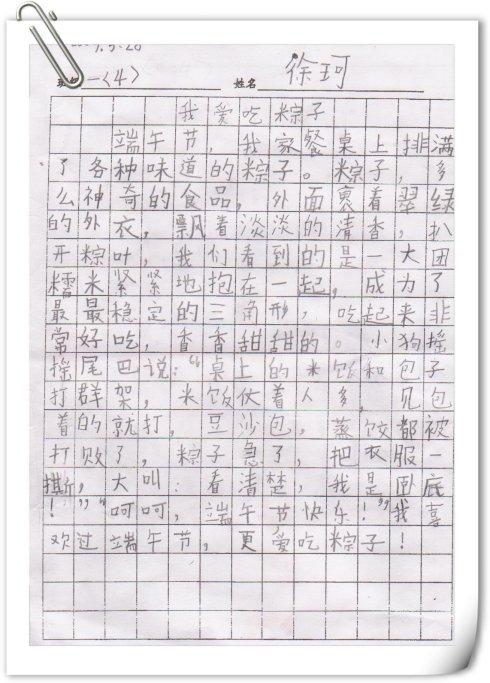 班级一〈4〉 姓名 徐珂
我爱吃粽子
端午节，我家餐桌上排满
了各种味道的粽子。粽子，多
么神奇的食品，外面裹着翠绿
的外衣，飘着淡淡的清香，扒
开粽叶，我们看到的是一大团
糯米紧紧地抱在一起，成为了
最最稳定的三角形，吃起来非
常好吃，香香甜甜的。小狗摇
摇尾巴说：“桌上的米饭和包子
打群架，米饭伙着人多，见包
着的就打，豆沙包，蒸饺都被
打败了，粽子急了，把衣服一
撕，大叫：看清楚，我是卧底
！”“呵呵，端午节快乐！”我喜
欢过端午节，更爱吃粽子！